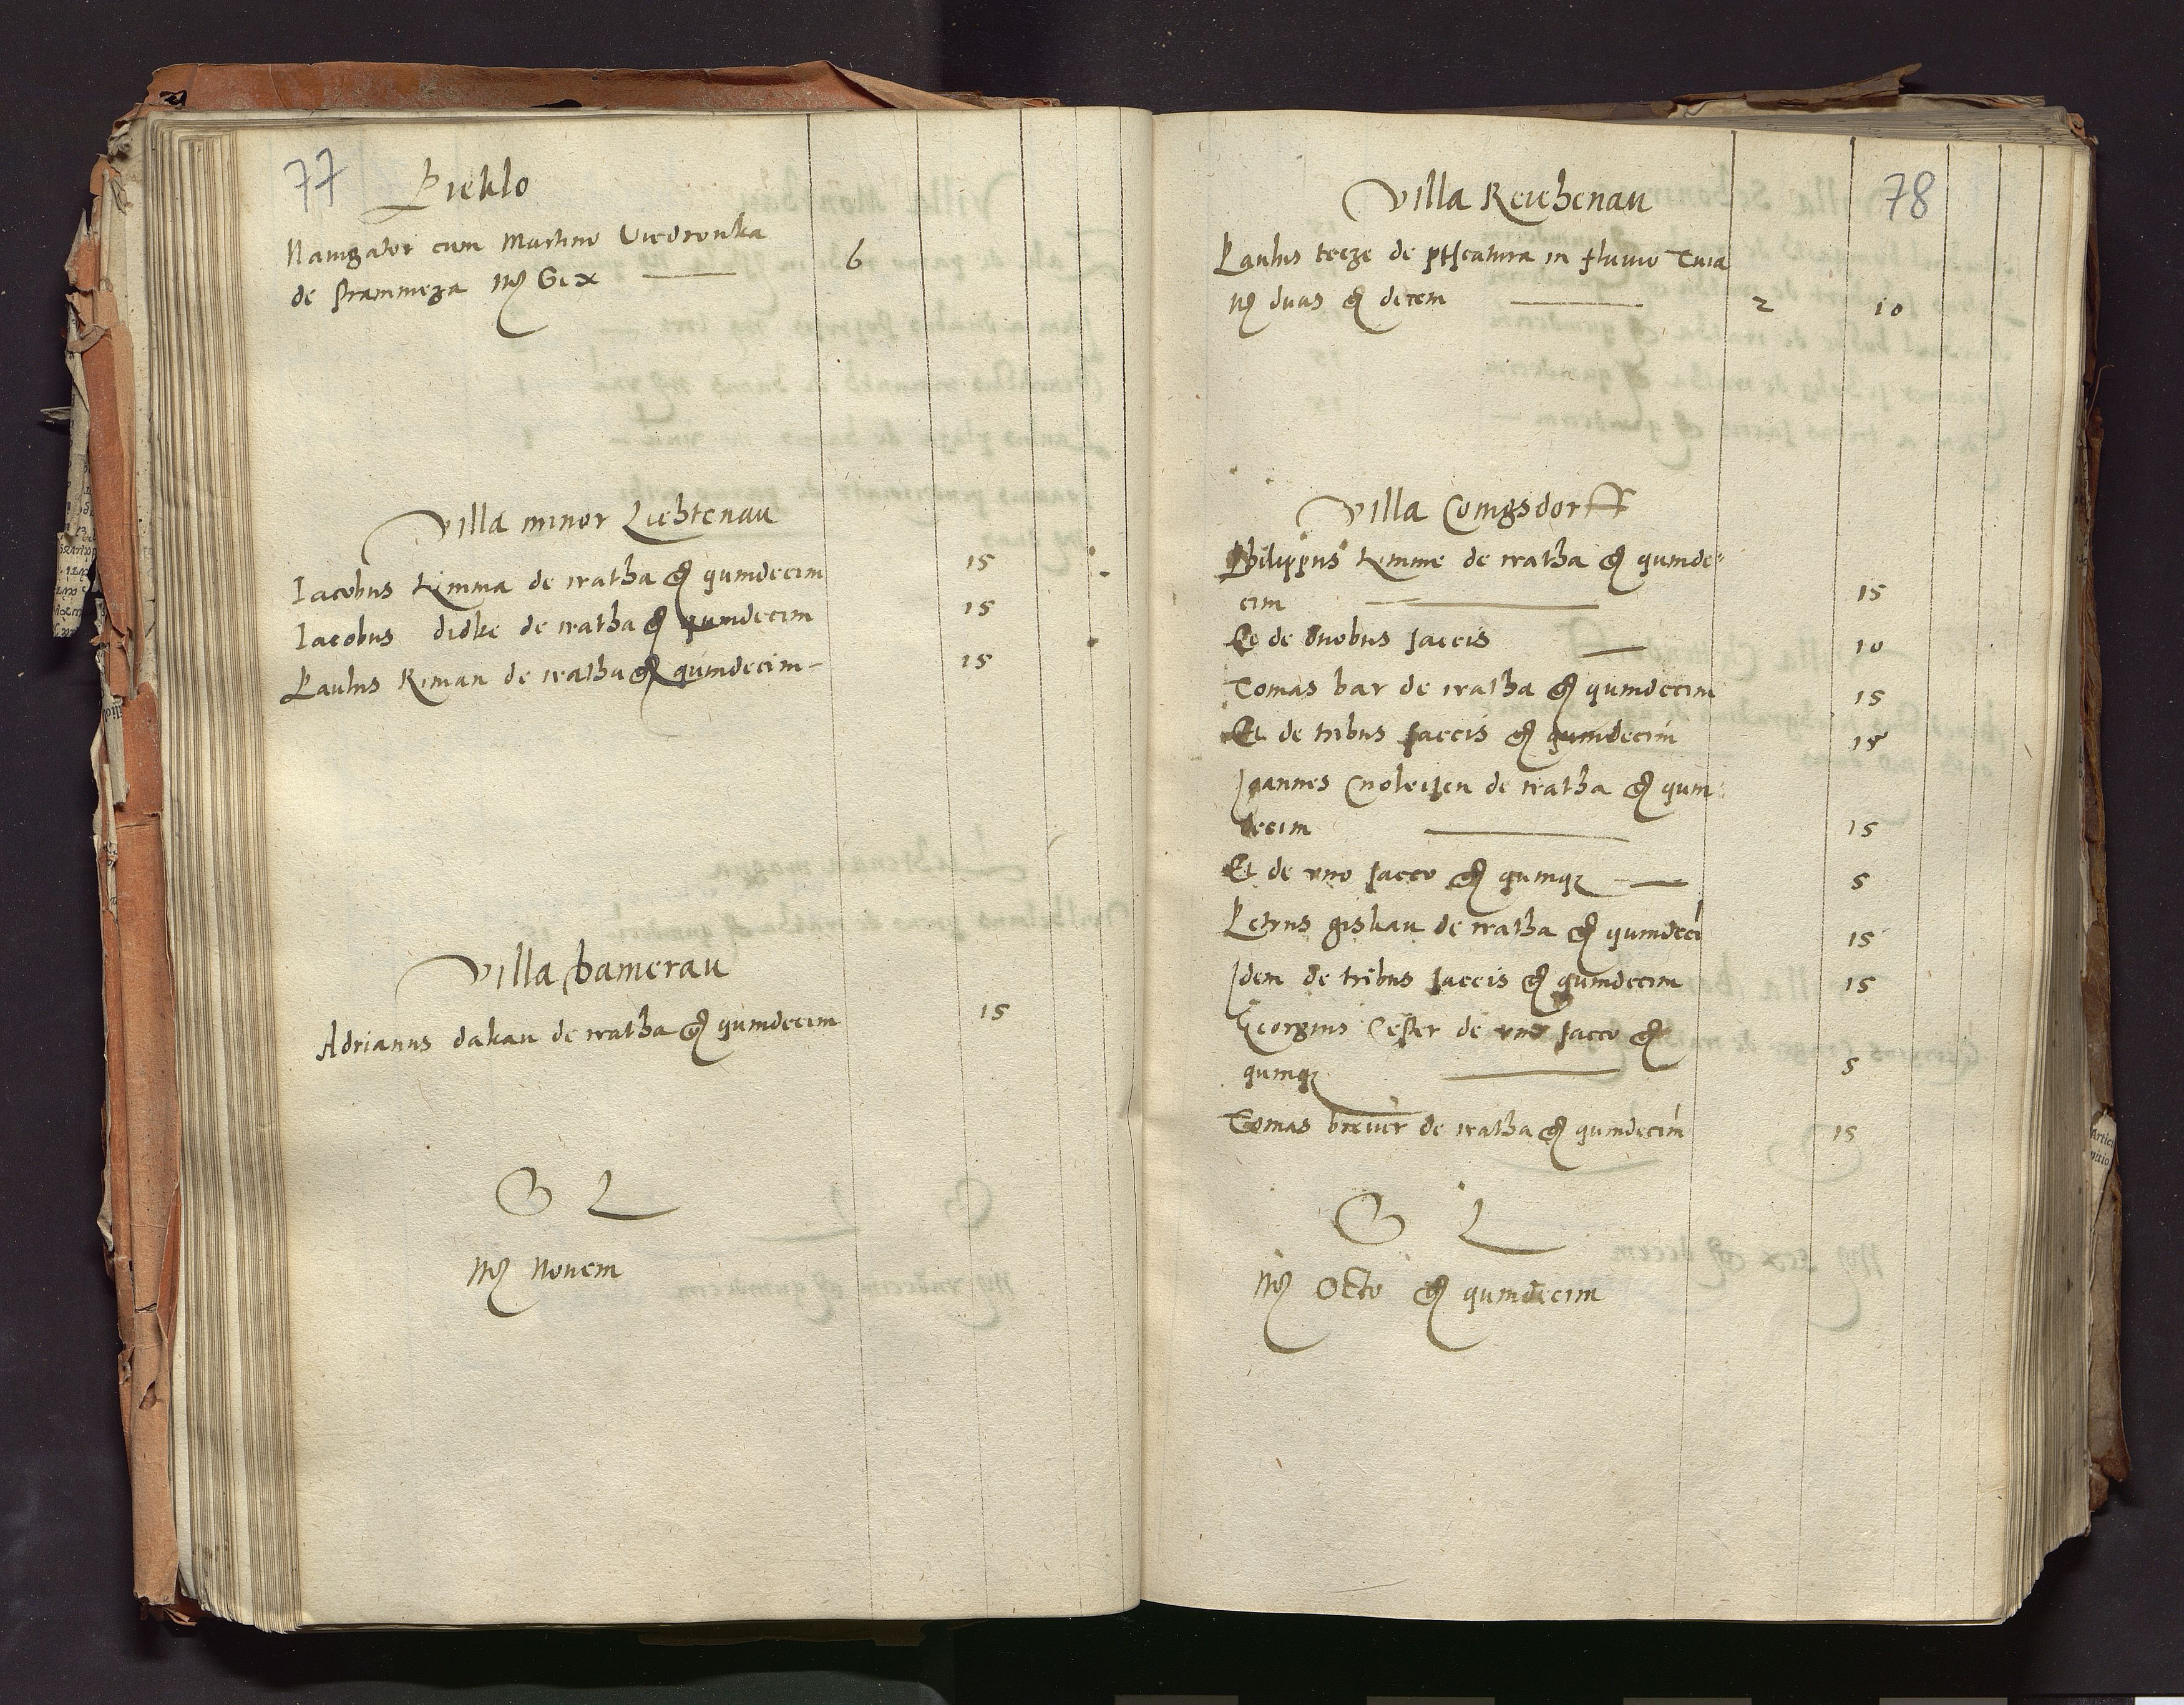 77
Pieklo
Nauigator cum Martino Viedronka 6
de Strammeza mꝝ Sex
Villa minor Liehtenau
Iacobus Kimma de watha gꝝ quindecim 15
Iacobus didke de watha gꝝ quindecim 15
Paulus Riman de watha gꝝ quindecim 15
Villa Damerau
Adrianus dakau de watha gꝝ quindecim 15
S L
Mꝝ Nouem
78
Villa Reichenau
Paulus tecze de piscatura in fluuio Tuia
mꝝ duas gꝝ decem 2 10
Villa Conigsdorff
Philippus Kimme de watha gꝝ quinde
cim 15
Et de duobus saccis 10
Tomas bar de watha gꝝ quindecim 15
Et de tribus saccis gꝝ quindecim 15
Joannes de watha gꝝ quin
decim 15
Et de vno sacco gꝝ quinqꝫ 5
Petrus giskau de watha gꝝ quindeci 15
Idem de tribus saccis gꝝ quindecim 15
Georgius Cester de vno sacco gꝝ
quinqꝫ 5
Tomas breuer de watha gꝝ quindecim 15
S L
Mꝝ Octo gꝝ quindecim